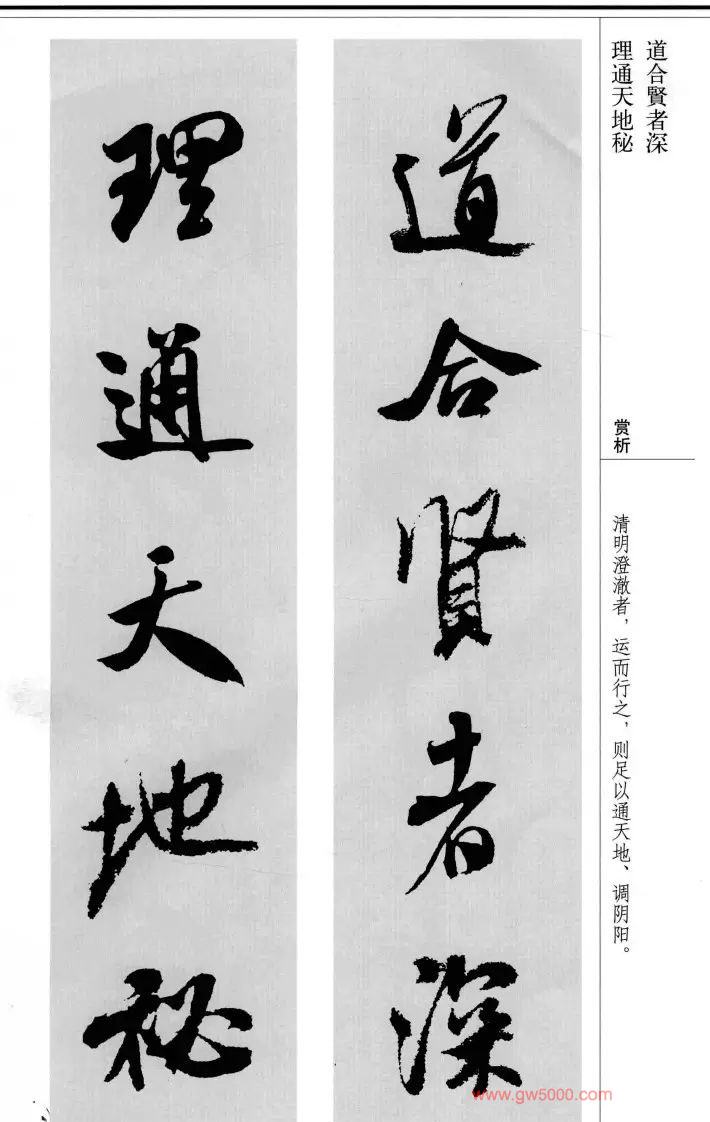 道合賢者深
理通天地秘
赏析
清明澄澈者，运而行之，则足以通天地、调阴阳。
道合賢者深
理通天地秘
www.gw5000.com